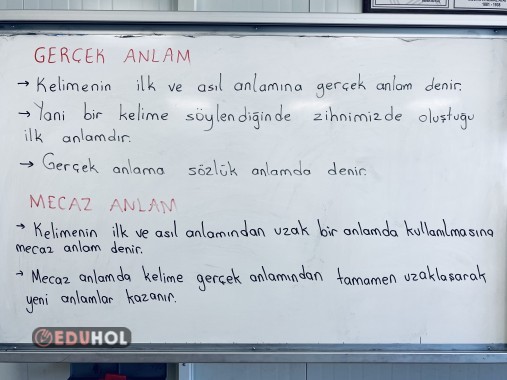 GERÇEK ANLAM
→ Kelimenin ilk ve asıl anlamına gerçek anlam denir.
→ Yani bir kelime söylendiğinde zihnimizde oluştuğu
ilk anlamdır.
→ Gerçek anlama sözlük anlamda denir.
MECAZ ANLAM
→ Kelimenin ilk ve asıl anlamından uzak bir anlamda kullanılmasına
mecaz anlam denir.
→ Mecaz anlamda kelime gerçek anlamından tamamen uzaklaşarak
yeni anlamlar kazanır.
EDUHOL